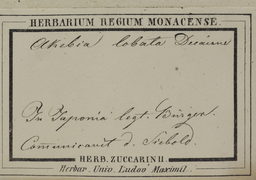 HERBARIUM REGIUM MONACENSE.
Akebia lobata Decaisne
In Japonia legt. Bürger.
Communicavit d. Siebold.
HERB. ZUCCARINII.
Herbar. Univ. Ludov. Maximil.